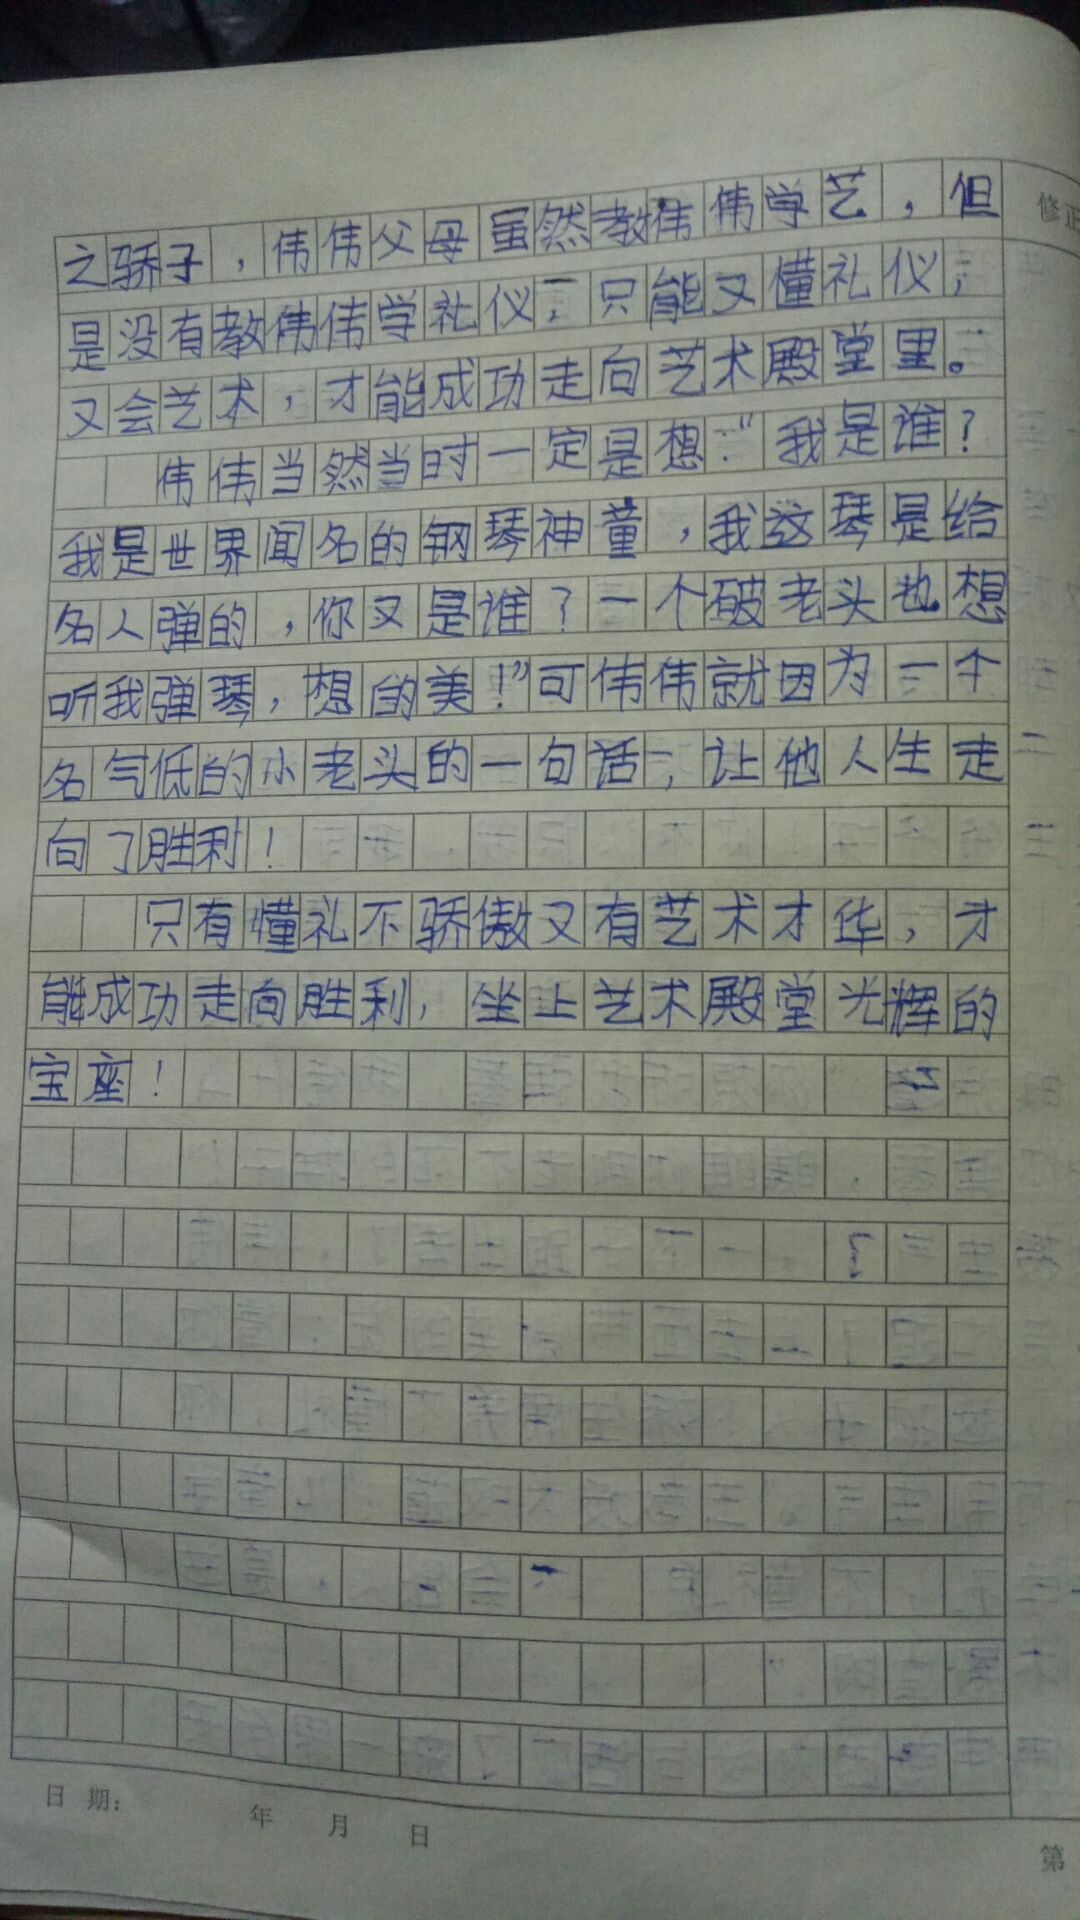 之骄子，伟伟父母虽然教伟伟学艺，但
是没有教伟伟学礼仪，只能又懂礼仪，
又会艺术，才能成功走向艺术殿堂里。
伟伟当然当时一定是想：“我是谁？
我是世界闻名的钢琴神童，我这琴是给
名人弹的，你又是谁？一个破老头也想
听我弹琴，想的美！”可伟伟就因为一个
名气低的小老头的一句话，让他人生走
向了胜利！
只有懂礼不骄傲又有艺术才华，才
能成功走向胜利，坐上艺术殿堂光辉的
宝座！
修正
日期： 年 月 日
第